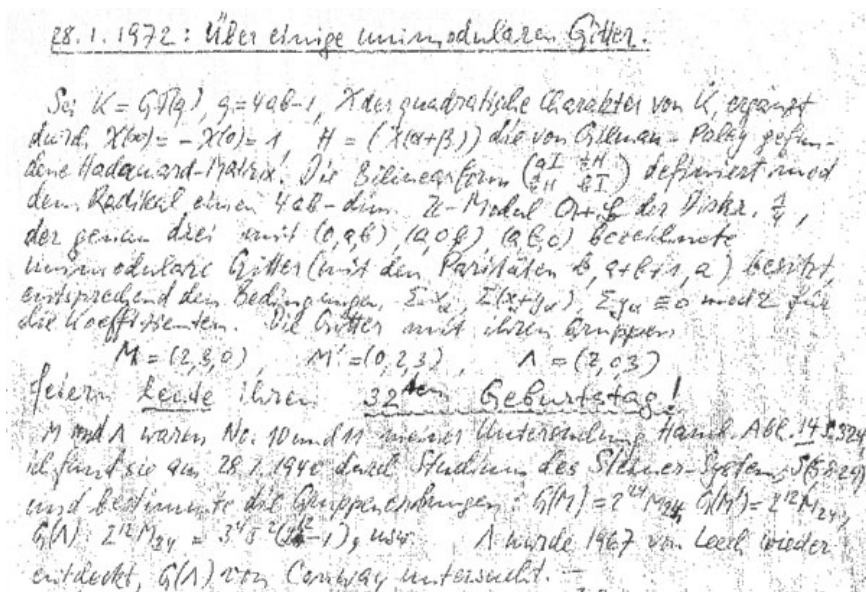 28.1.1972: Über einige unimodularen Gitter.
Sei K = GF(q), q = 4ab-1, χ der quadratische Charakter von K, ergänzt
durch χ(∞) = -χ(0) = 1, H = (χ(α+β)) die von Gilman-Paley gefun-
dene Hadamard-Matrix. Die Bilinearform (aI ½H ½H bI) definiert mod
dem Radikal einen 4ab-dim. Z-Modul der Diskr. ¼,
der genau drei mit (0,a,b), (a,0,b), (a,b,0) bezeichnete
unimodulare Gitter (mit den Paritäten b, a+b+1, a) besitzt,
entsprechend den Bedingungen Σxα, Σ(xα+yα), Σyα ≡ 0 mod 2 für
die Koeffizienten. Die Gitter mit ihren Gruppen
M = (2,3,0), M' = (0,2,3), Λ = (2,0,3)
feiern heute ihren 32ten Geburtstag!
M und Λ waren No. 10 und 11 meiner Untersuchung Hamb. Abh. 14 S. 324
ich fand sie am 28.1.1940 durch Studium des Steiner-Systems S(5,8,24)
und bestimmte die Gruppenordnungen: G(M) = 2²⁴M₂₄, G(M') = 2¹²M₂₄,
G(Λ): 2¹²M₂₄ = 3⁴5²(2¹²-1), usw. Λ wurde 1967 von Leech wieder
entdeckt, G(Λ) von Conway untersucht. –